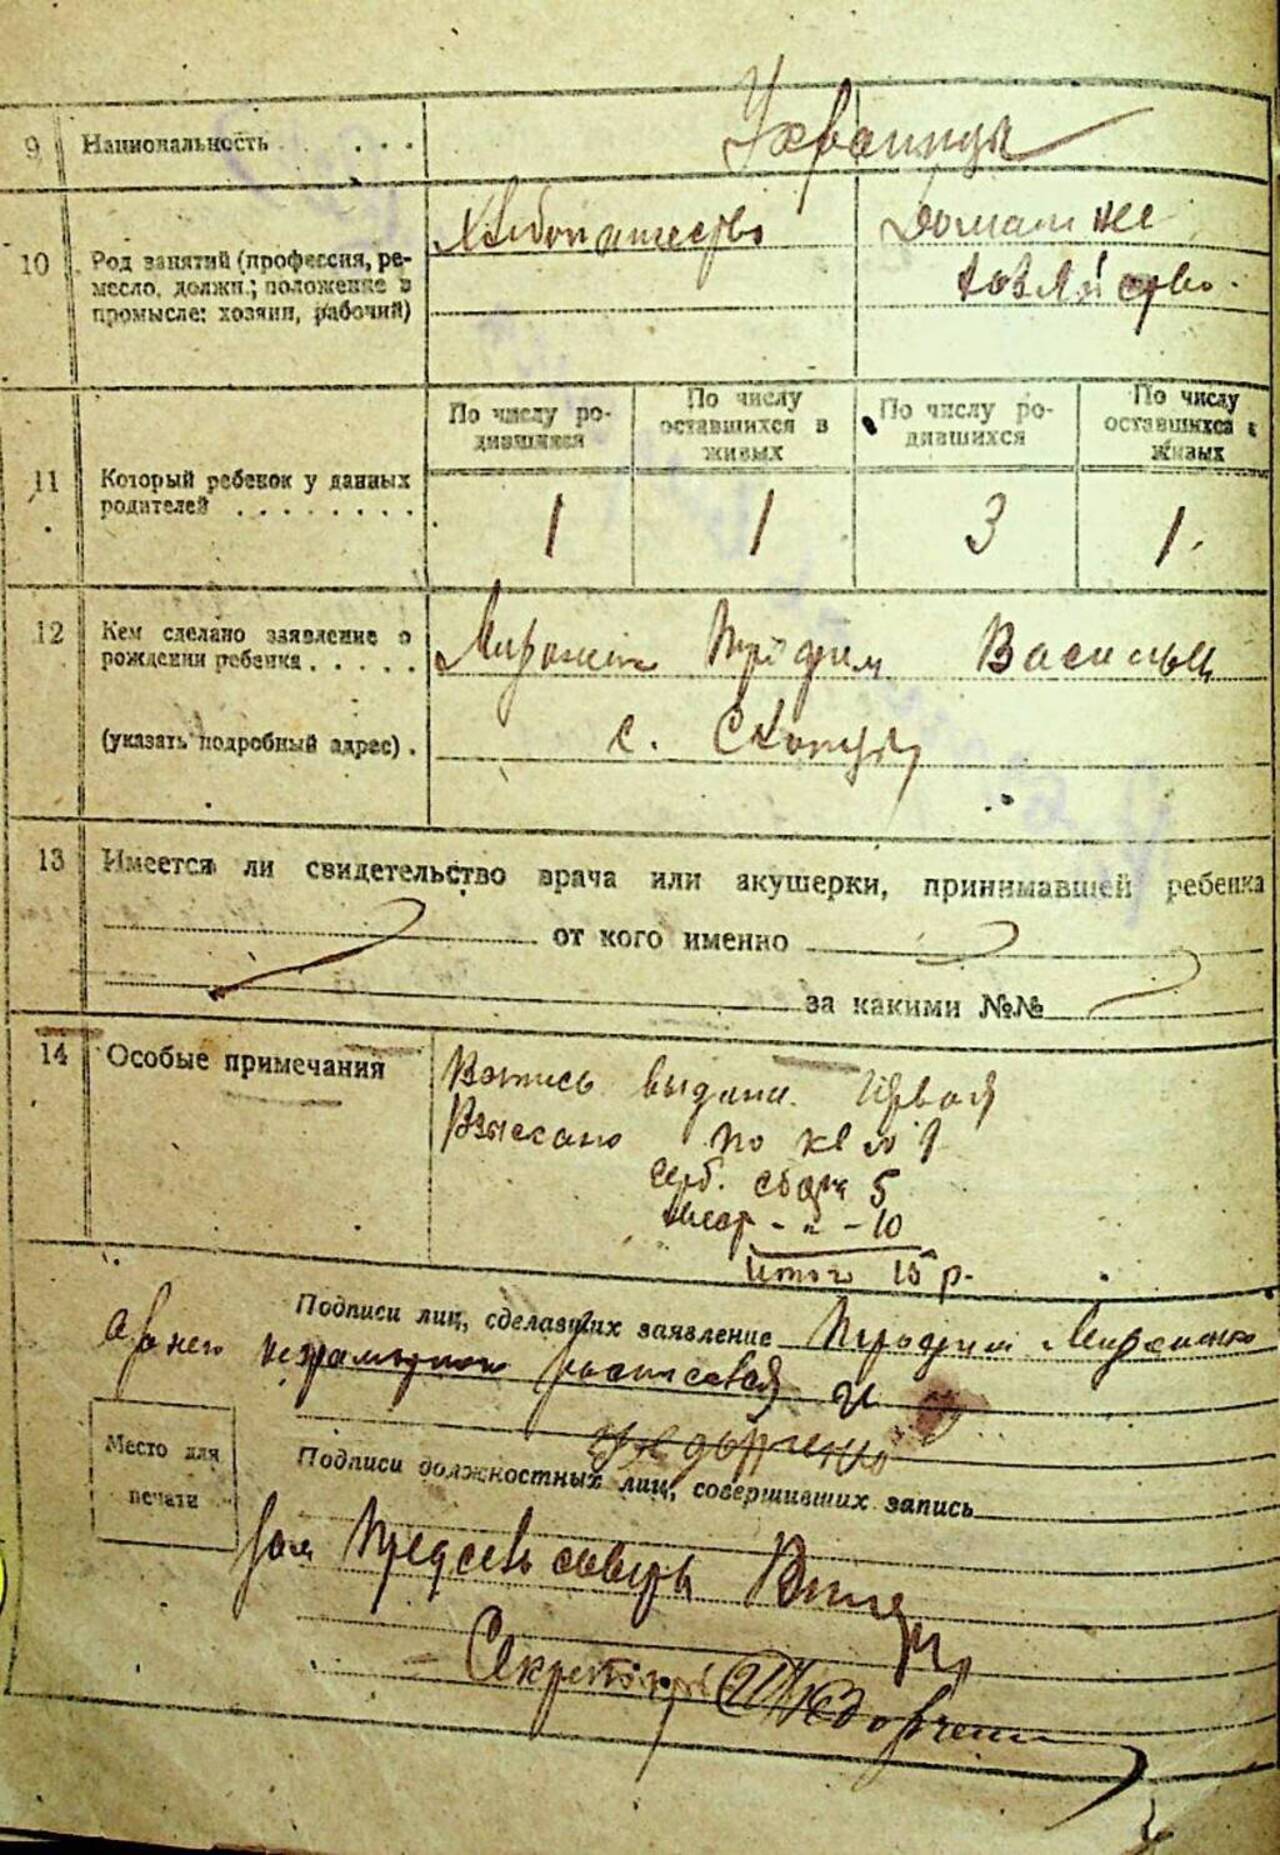 9 Национальность . . . . Украинцы
10 Род занятий (профессия, ре-
месло, должн.; положение в
промысле: хозяин, рабочий)
Хлебопашество
Домашнее
хозяйство.
11 Который ребенок у данных
родителей . . . . . . . .
По числу ро-
дившихся
По числу
оставшихся в
живых
По числу ро-
дившихся
По числу
оставшихся в
живых
1 1 3 1.
12 Кем сделано заявление о
рождении ребенка . . . . .
(указать подробный адрес) .
Мироненко Трофим
с.
13 Имеется ли свидетельство врача или акушерки, принимавшей ребенка
от кого именно
за какими №№
14 Особые примечания
выдана первая
Взыскано по кв № 1
герб. сбора 5
- " - 10
Итого 15 р.
Подписи лиц, сделавших заявление Трофим Мироненко
а за него неграмотного расписался И
Федорченко
Место для
печати
Подписи должностных лиц, совершивших запись
Зам Предсельсовета
Секретарь Федорченко